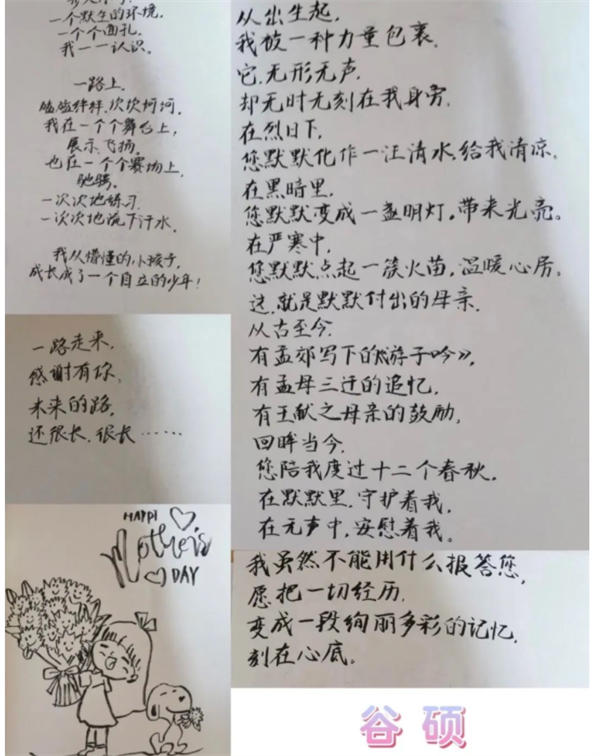 一个默生的环境,
一个个面孔,
我一一认识。
一路上,
磕磕绊绊、坎坎坷坷,
我在一个个舞台上,
展示、飞扬,
也在一个个赛场上,
驰骋。
一次次地练习,
一次次地流下汗水,
我从懵懂的小孩子,
成长成了一个自立的少年!
一路走来,
感谢有你,
未来的路,
还很长,很长……
HAPPY
Mother's
DAY
从出生起,
我被一种力量包裹,
它,无形无声,
却无时无刻在我身旁,
在烈日下,
您默默化作一汪清水,给我清凉。
在黑暗里,
您默默变成一盏明灯,带来光亮。
在严寒中,
您默默点起一簇火苗,温暖心房。
这,就是默默付出的母亲,
从古至今,
有孟郊写下的《游子吟》,
有孟母三迁的追忆,
有王献之母亲的鼓励,
回眸当今,
您陪我度过十二个春秋,
在默默里,守护着我,
在无声中,安慰着我。
我虽然不能用什么报答您,
愿把一切经历,
变成一段绚丽多彩的记忆,
刻在心底。
谷 硕